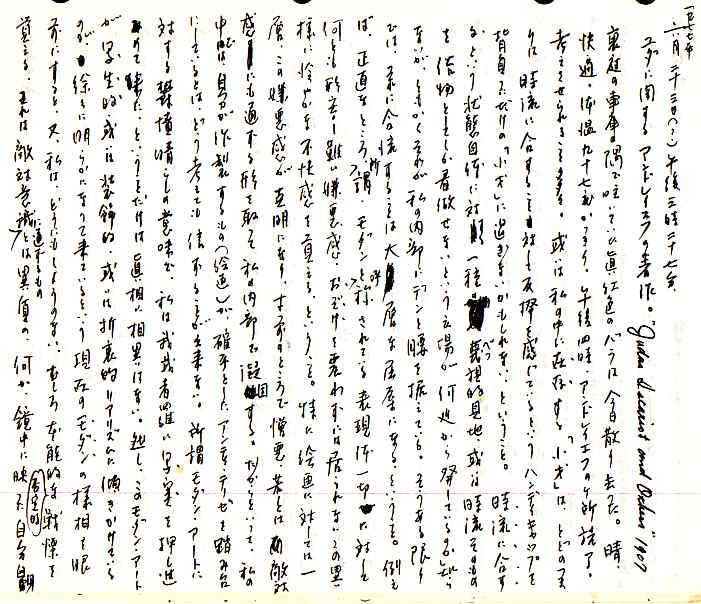 一九七七年
八月二十三日(…)午後三時二十七分
ユダに関するアンドレイエフの著作。"Judas Iscariot and Others" 1907
裏庭の車庫の隅で咲いていた真紅色のバラは今日散り去った。晴、
快適。体温九十七度
考えさせられることも多き。或いは私の中に在存する「小才」は
時流に合することに対して反撥を感じているというハンディキャップを
背負っただけの「小犬」に過ぎないかもしれない、ということ。時流に合す
るという状態自体に対し一種の蔑視的見地或は時流そのもの
を俗物としてしか看做せないという立場が何処から発しているのか知ら
ないが、ともかくそれが私の内部にデンと腰を据えている。そうある限り
では、流に合流することは大層な居屈にある、という。例え
ば、正直なところ、所謂、モダンと称されている表現体一切に対して
何とも形容し難い嫌悪感、おぞけを震わずには居られないこの異
様に冷やかな不快感を覚える、ということ。特に絵画に対しては一
層、この嫌悪感が克明になり、すんでのところで憎悪、若しくは敵対
感にも通ずる形を取って私の内部で凝固する。だからといって、私の
中では自分が作製するもの(絵画)が確乎としたアンティ・テーゼを踏み台
にしているとはどう考えても信ずることが出来ない。所謂モダン・アートに
対する欝憤晴らしの意味で、私は我武者羅に写実を押し進
めて来た、ということだけは真相に相異はない。然し、このモダン・アート
が写生的或いは装飾的、或いは折衷的リアリズムに傾きかけている
のが、徐々に明らかになって来ているという現在のモダンの様相を眼
前にすると、又、私はどうにもしようのない、むしろ本能的な戦慄を
覚える。それは敵対意識に通ずるものとは異質の、何か、鏡中に映った自分の